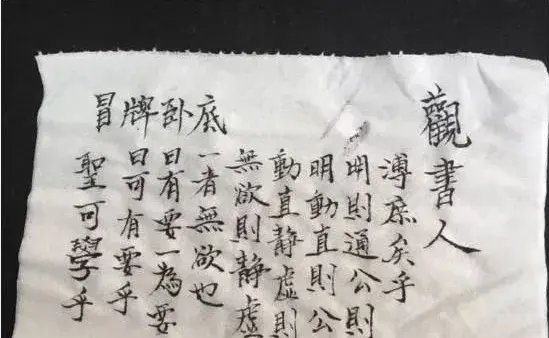 冒牌卧底
聖可學乎
曰可有要乎
曰有要一為要
一者無欲也
無欲則静虛
動直静虛則
明動直則公
明則通公則
溥庶矣乎
觀書人